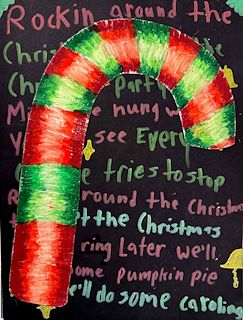 Rockin around the
Chris the
Ch Party
M hung w
Y see Every
e tries to stop
R round the Christm
t the Christmas
ring Later we'll
ome Pumpkin pie
e'll do some caroling